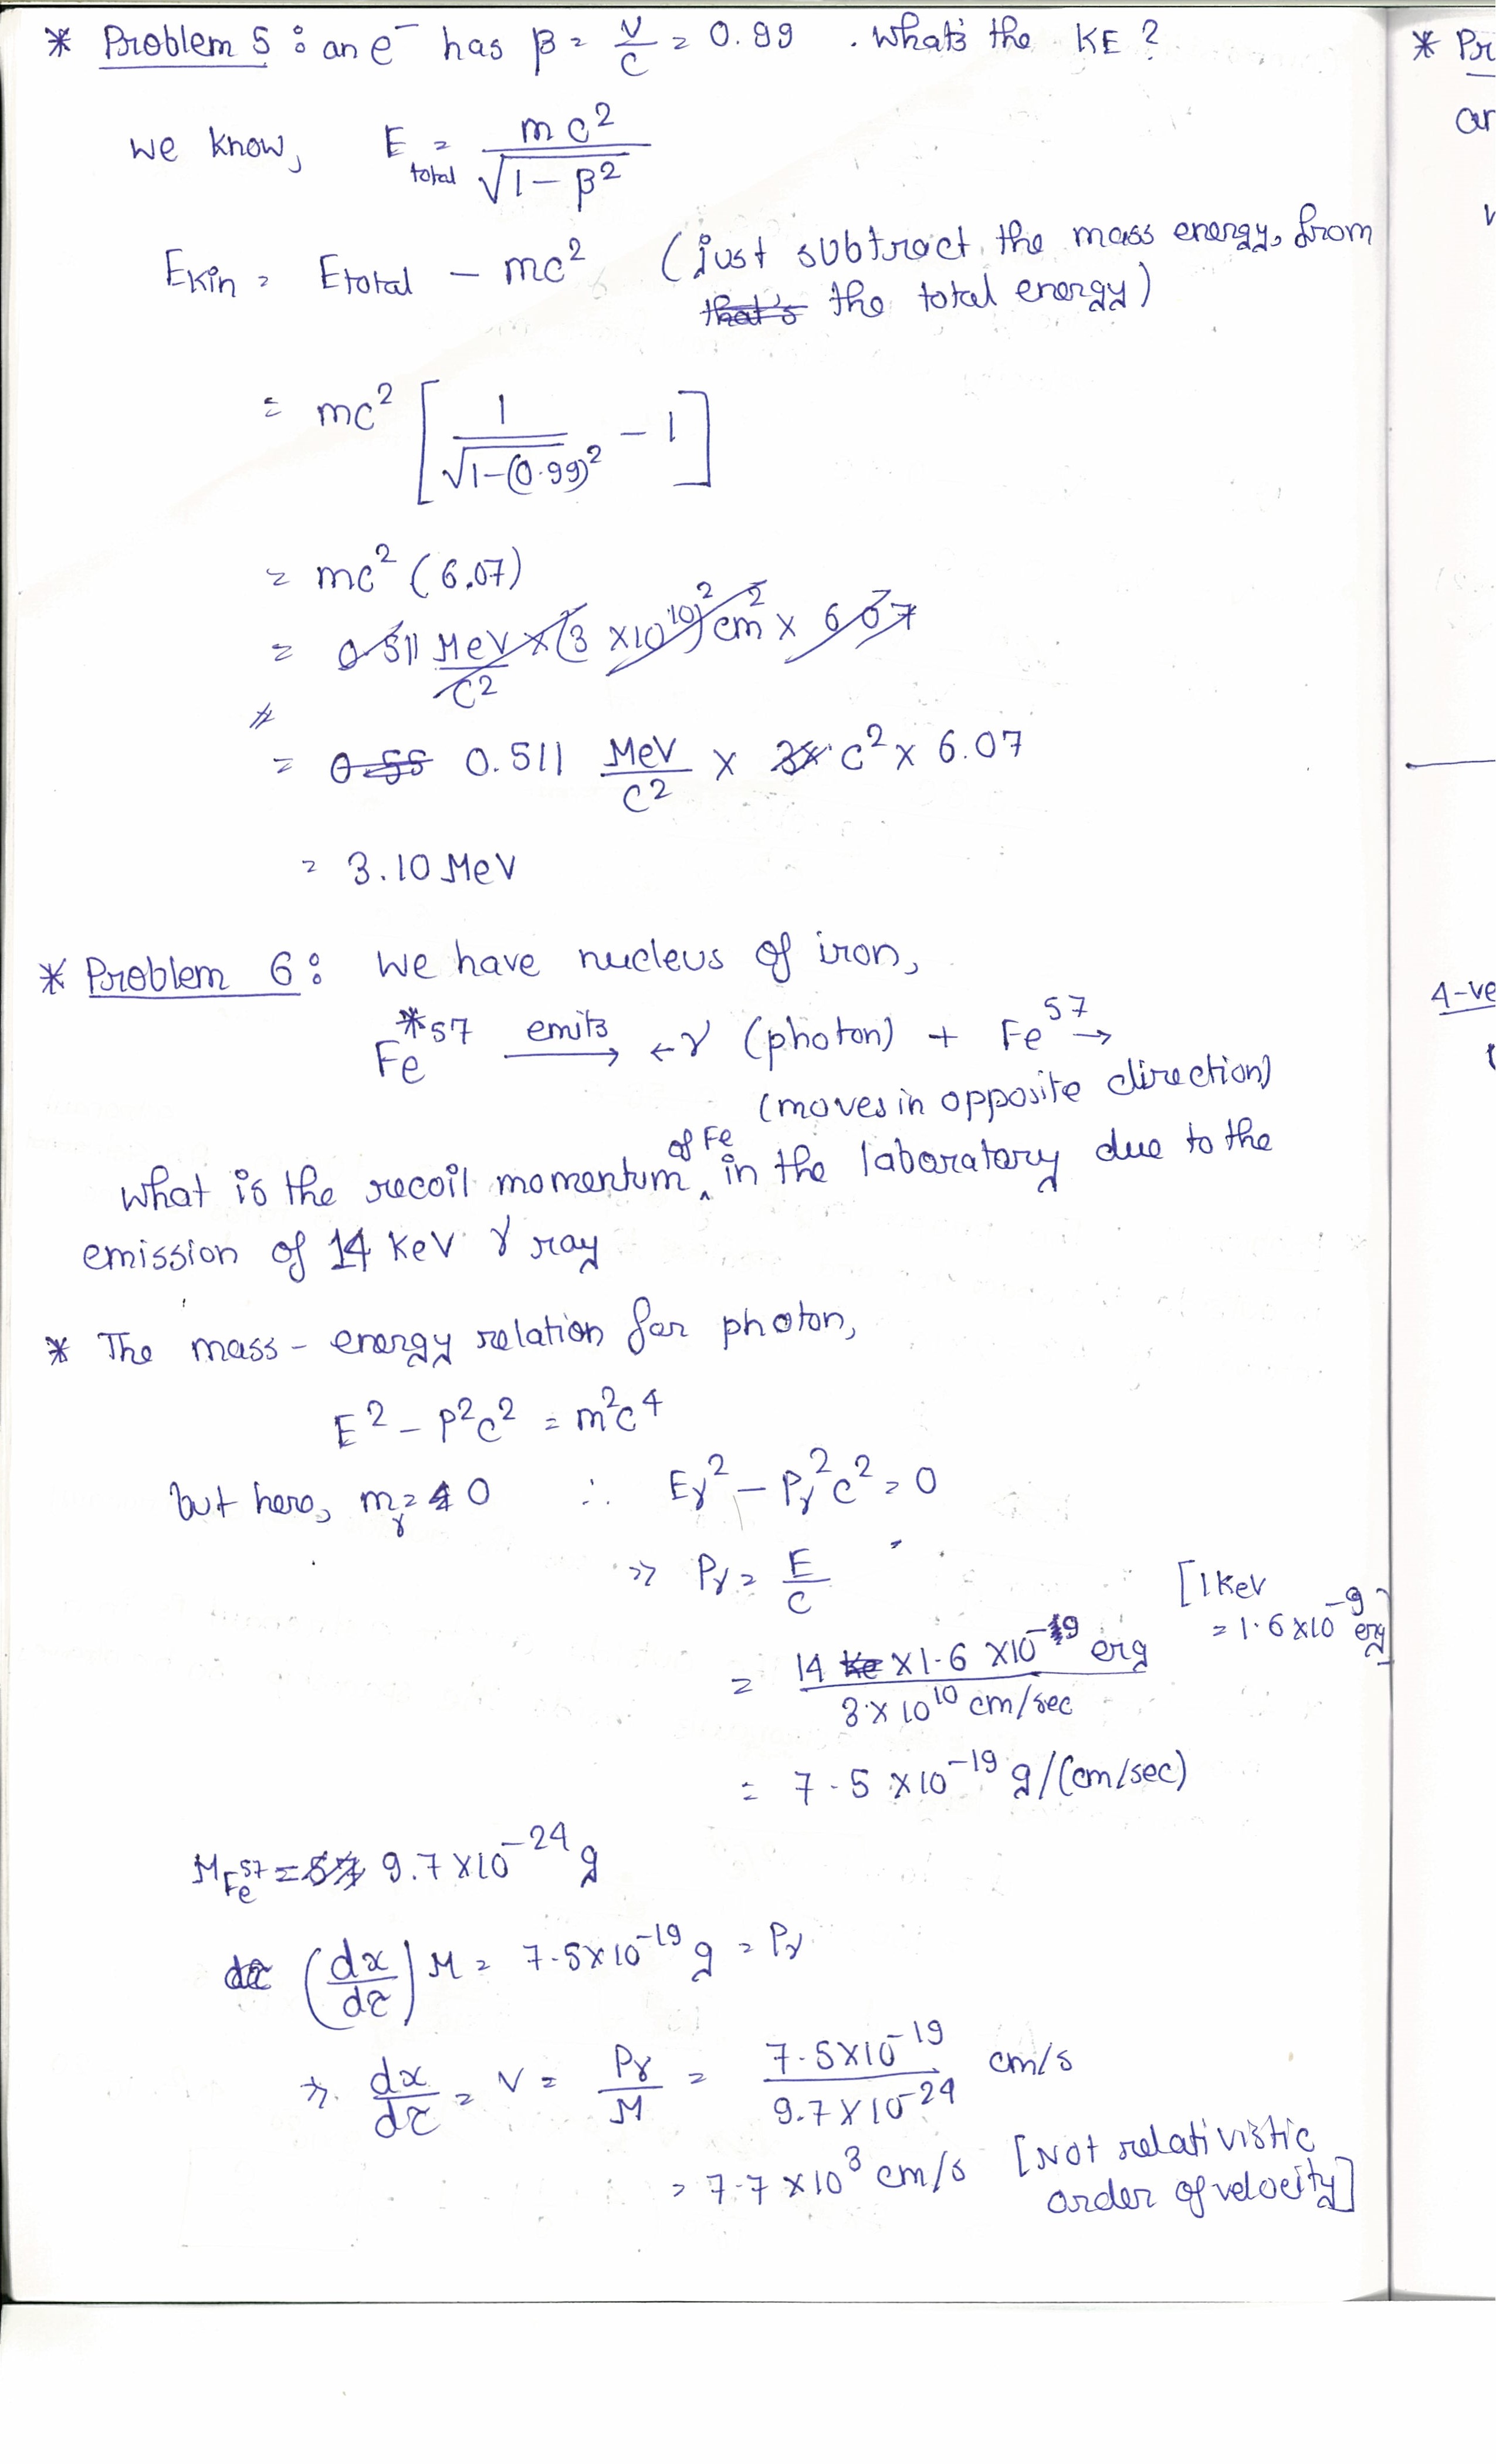 * Problem 5 : an e⁻ has β = v/c = 0.99 . What's the KE ?
we know, E total = mc² / √(1-β²)
Ekin = Etotal - mc² (just subtract the mass energy from
that's the total energy)
= mc² [ 1/√(1-(0.99)²) - 1 ]
= mc² (6.07)
= 0.511 MeV/c² × (3 ×10¹⁰)² cm² × 6.07
= 0.55 0.511 MeV/c² × 3× c² × 6.07
= 3.10 MeV
* Problem 6 : We have nucleus of iron,
Fe*⁵⁷ emits → ←γ (photon) + Fe⁵⁷→
(moves in opposite direction)
What is the recoil momentum of Fe in the laboratory due to the
emission of 14 KeV γ ray
* The mass - energy relation for photon,
E² - P²c² = m²c⁴
but here, mγ = 0 ∴ Eγ² - Pγ²c² = 0
⇒ Pγ = E/c
[1 KeV
= 1.6 ×10⁻⁹ erg]
= 14 Ke ×1.6 ×10⁻¹⁹ erg / 3×10¹⁰ cm/sec
= 7.5 ×10⁻¹⁹ g/(cm/sec)
M Fe⁵⁷ = 57 9.7×10⁻²⁴ g
dτ (dx/dτ) M = 7.5×10⁻¹⁹ g = Pγ
⇒ dx/dτ = v = Pγ/M = 7.5×10⁻¹⁹ / 9.7×10⁻²⁴ cm/s
= 7.7 ×10³ cm/s [Not relativistic
order of velocity]
* Pr
ar
4-ve